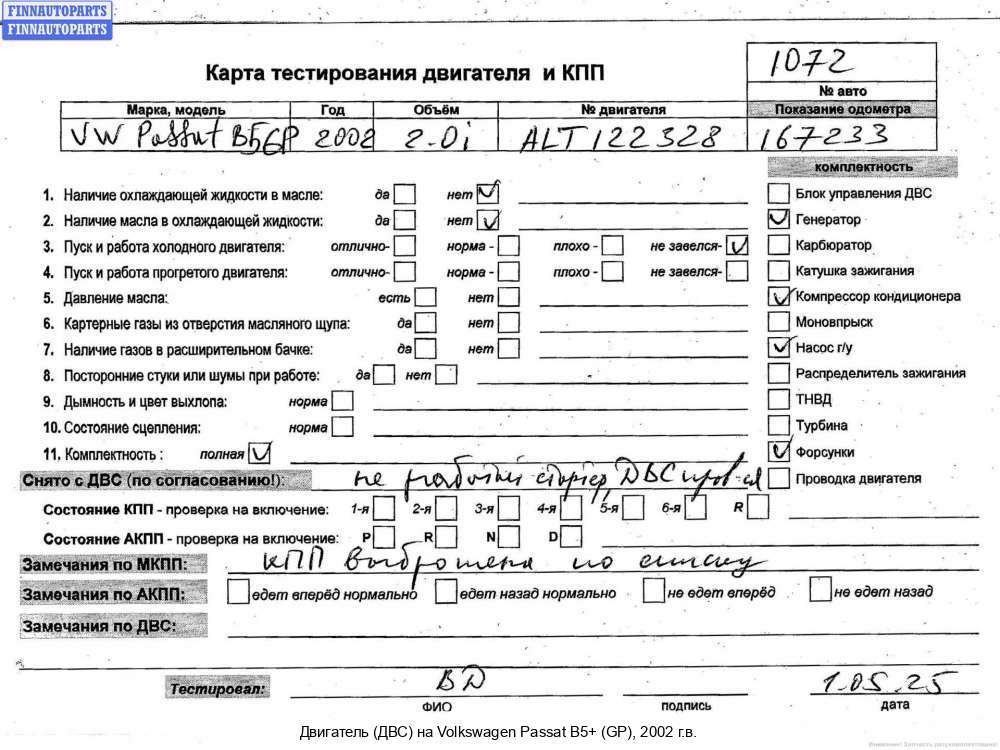 FINNAUTOPARTS
FINNAUTOPARTS
1072
Карта тестирования двигателя и КПП
№ авто
Марка, модель Год Объём № двигателя Показание одометра
VW Passat B5GP 2002 2.0i ALT122328 167233
комплектность
1. Наличие охлаждающей жидкости в масле: да нет Блок управления ДВС
2. Наличие масла в охлаждающей жидкости: да нет Генератор
3. Пуск и работа холодного двигателя: отлично- норма - плохо - не завелся- Карбюратор
4. Пуск и работа прогретого двигателя: отлично- норма - плохо - не завелся- Катушка зажигания
5. Давление масла: есть нет Компрессор кондиционера
6. Картерные газы из отверстия масляного щупа: да нет Моновпрыск
7. Наличие газов в расширительном бачке: да нет Насос г/у
8. Посторонние стуки или шумы при работе: да нет Распределитель зажигания
9. Дымность и цвет выхлопа: норма ТНВД
10. Состояние сцепления: норма Турбина
11. Комплектность : полная Форсунки
Снято с ДВС (по согласованию!): не рабочий стартер ДВС пров-ся Проводка двигателя
Состояние КПП - проверка на включение: 1-я 2-я 3-я 4-я 5-я 6-я R
Состояние АКПП - проверка на включение: P R N D
Замечания по МКПП: КПП выброшена по списку
Замечания по АКПП: едет вперёд нормально едет назад нормально не едет вперёд не едет назад
Замечания по ДВС:
Тестировал: ВД 1.05.25
ФИО подпись дата
Двигатель (ДВС) на Volkswagen Passat B5+ (GP), 2002 г.в.